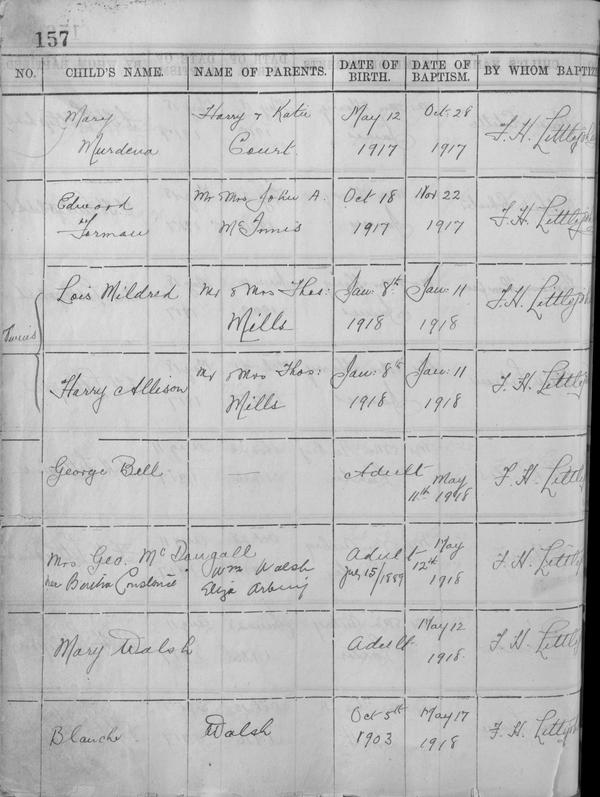 157
NO. CHILD'S NAME. NAME OF PARENTS. DATE OF BIRTH. DATE OF BAPTISM. BY WHOM BAPTIZ
Mary Harry & Katie May 12 Oct. 28 F. H. Littlejohn
Murdena Court. 1917 1917
Edward Mr Mrs John A. Oct 18 Nov 22 F. H. Littlejoh
Forman McInnis 1917 1917
Twins
Lois Mildred Mr & Mrs Thos: Jan: 8th Jan: 11 F. H. Littlejoh
Mills 1918 1918
Harry Allison Mr & Mrs Thos: Jan: 8th Jan: 11 F. H. Littlej
Mills 1918 1918
George Bell — Adult May F. H. Littlej
11th 1918
Mrs. Geo. McDougall Adult May F. H. Littlej
nee Bertha Constance Wm Walsh July 15/1889 12th
Eliza 1918
Mary Walsh Adult May 12 F. H. Littlej
1918.
Blanche Walsh Oct 5th May 17 F. H. Littlej
1903 1918